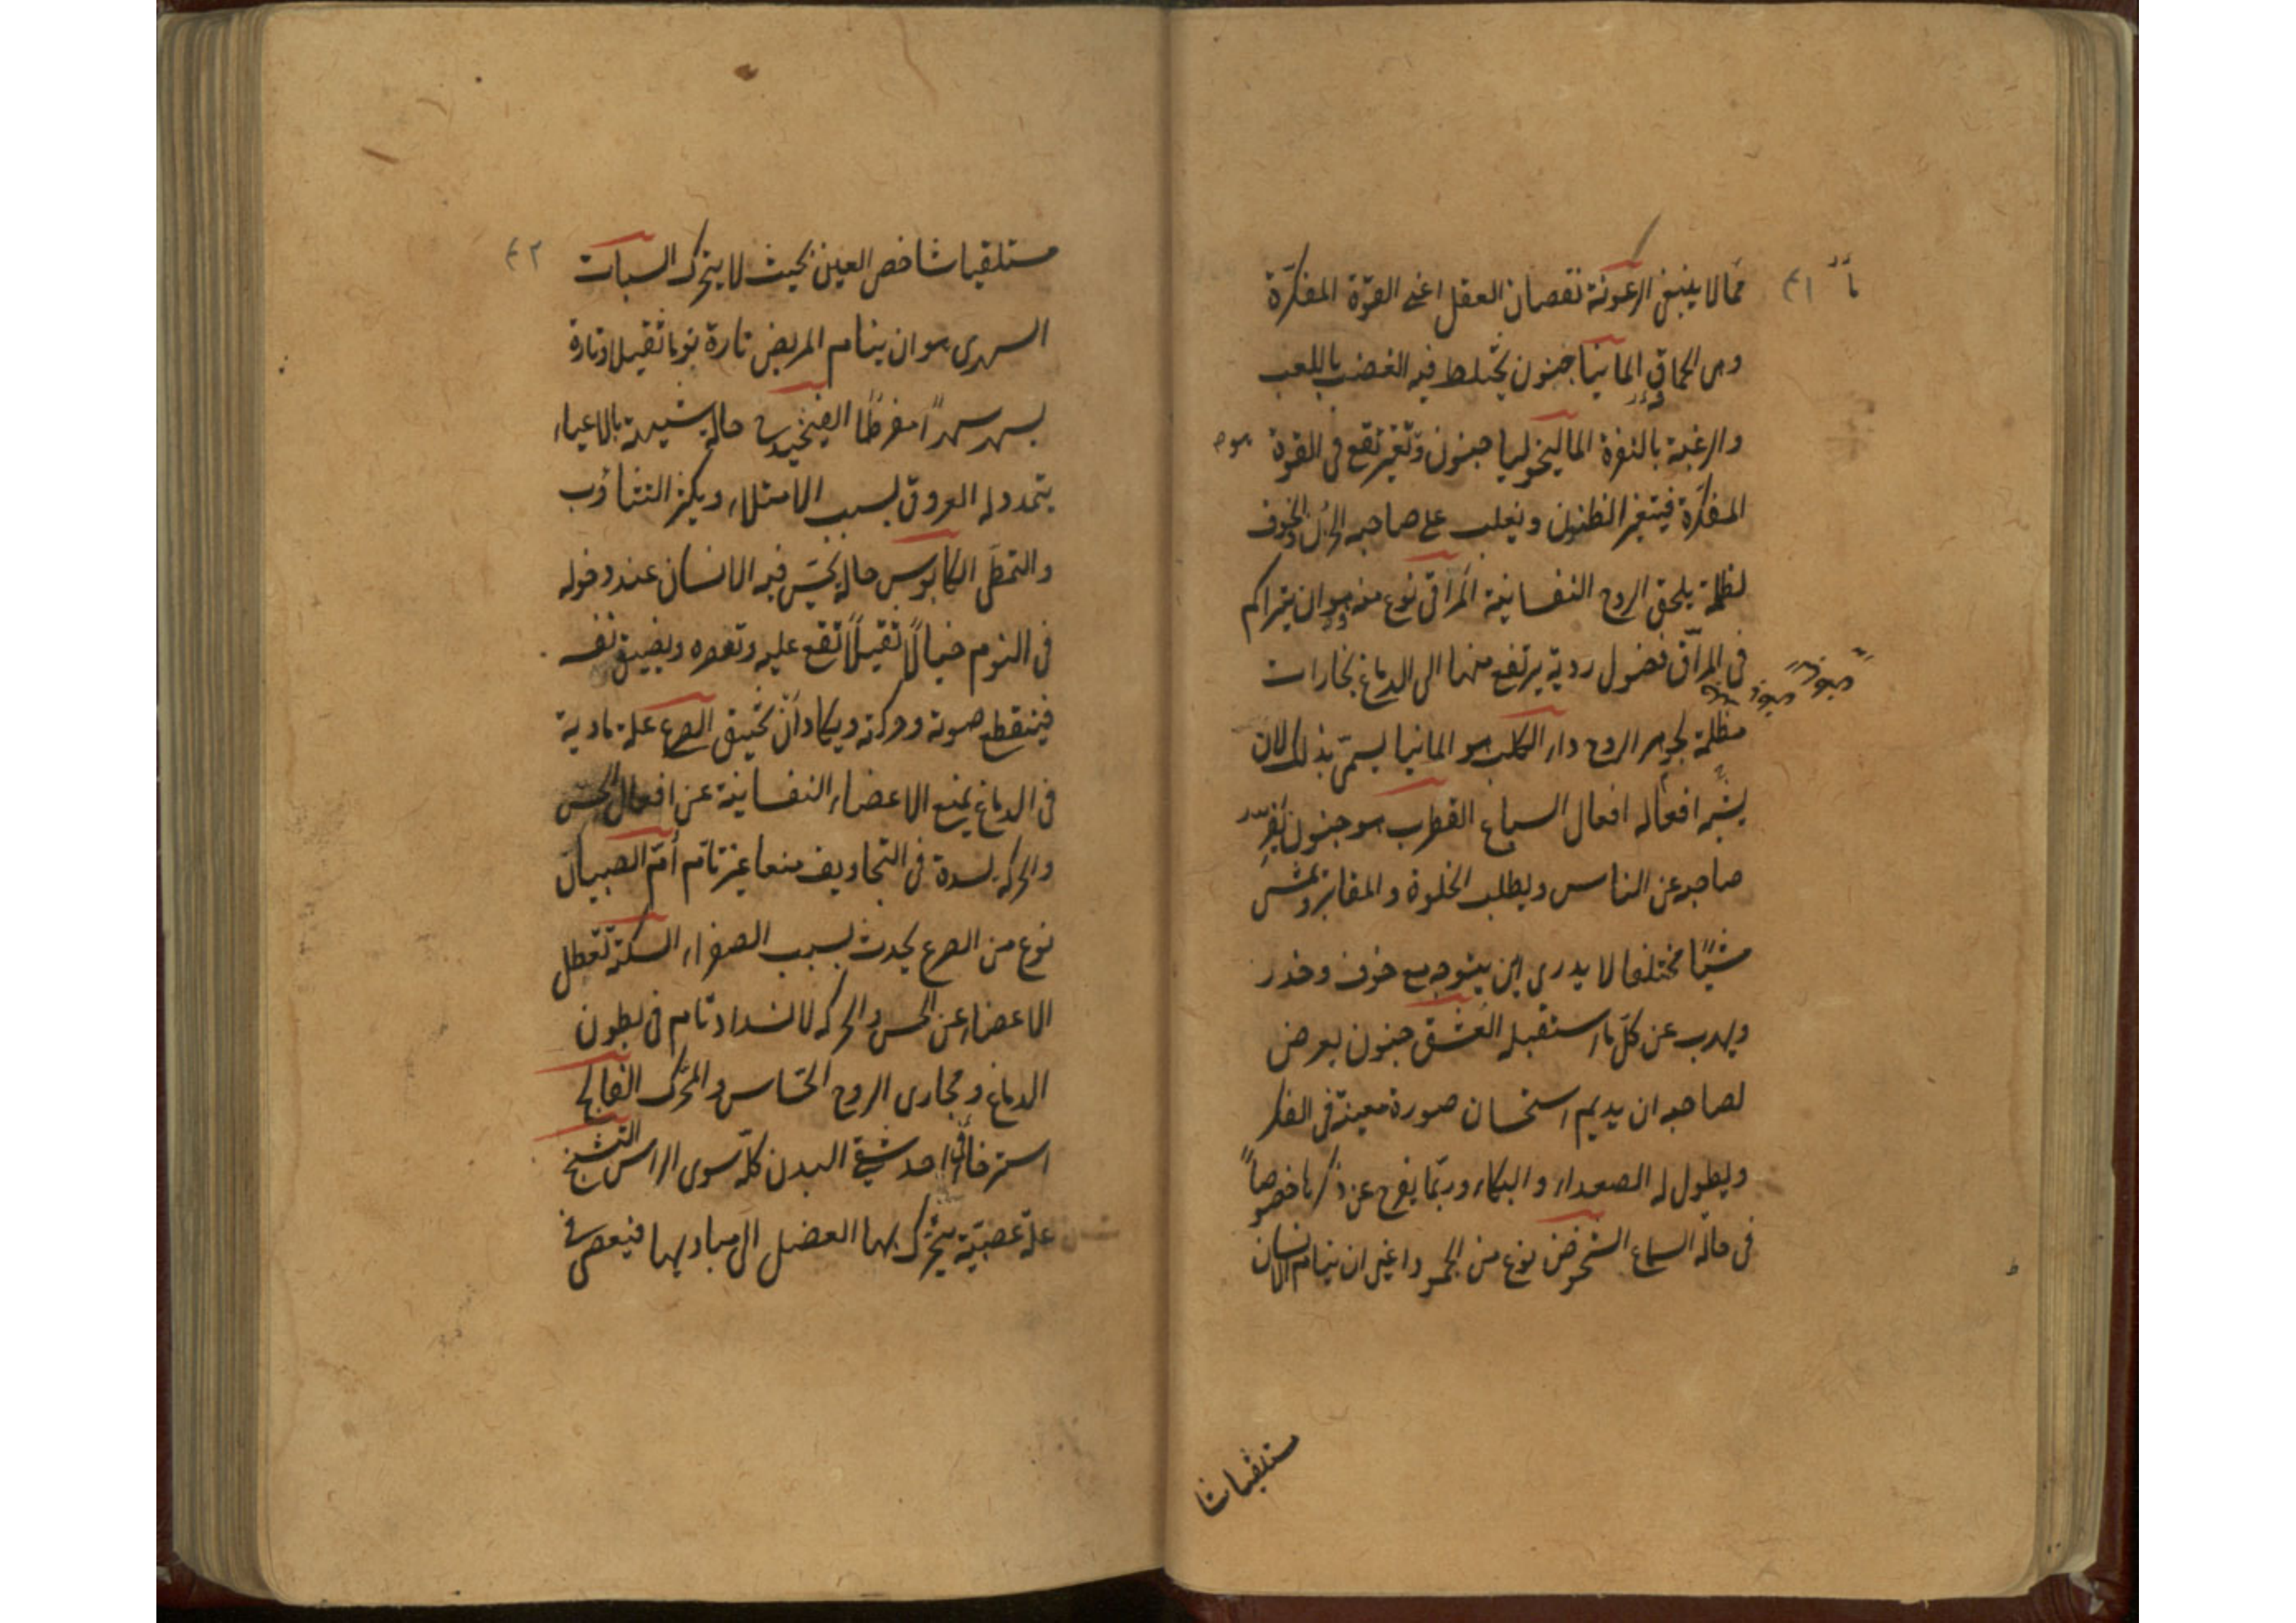 مما لا ينبغي الرعونة نقصان العقل اعني القوّة المفكرة
وهى الحماقة المانيا جنون يختلط فيه الغضب باللعب
والرغبة بالنفرة الماليخوليا جنون وتغير تقع فى القوة
المفكرة فيتغير الظنون ويغلب على صاحبه الحزن والخوف
لظلمة يلحق الروح النفسانية المراقى نوع منه وهو ان يتراكم
فى المراقّ فضول ردية يرتفع منها الى الدماغ بخارات
مظلمة لجوهر الروح داء الكلب هو المانيا يسمّى بذلك لان
يشبه افعاله افعال السباع القطرب هو جنون يفرّ
صاحبه عن الناس ويطلب الخلوة والمقابر ويمشى
مشيًا مختلفا لا يدرى اين يتوجه مع خوف وحذر
ويهرب عن كلّ ما استقبله العشق جنون يعرض
لصاحبه ان يديم استحسان صورة معينة فى الفكر
ويطول له الصعداء والبكاء وربّما يفرح عن ذكرها خصوصاً
فى حالة السماع الشخوص نوع من الجمود اعنى ان ينام الانسان
مستلقيا شا
٤٢
مستلقيا شاخص العين بحيث لا يتحرك السبات
السهرى هو ان ينام المريض تارة نوما ثقيلا وتارة
يسهر سهراً مفرطًا حالة شبيهة بالاعياء
يتمدد له العروق بسبب الامتلاء ويكثر التثاؤب
والتمطّى الكابوس حالة يحسّ فيه الانسان عند دخوله
فى النوم خيالاً ثقيلاً تقع عليه وتعصره ويضيق نفسه
فينقطع صوته وحركته ويكاد أن يختنق الصرع علة مادية
فى الدماغ يمنع الاعضاء النفسانية عن افعال الحسّ
والحركة لسدة فى التجاويف منعا غير تامّ أمّ الصبيان
نوع من الصرع يحدث بسبب الصفراء السكتة تعطل
الاعضاء عن الحس والحركة لانسداد تام فى بطون
الدماغ ومجارى الروح الحسّاس والمحرّك الفالج
استرخاء فى احد شقى البدن كلّه سوى الراس التشنج
علة عصبيّة يتحرّك بها العضل الى مباديها فيعصى فى